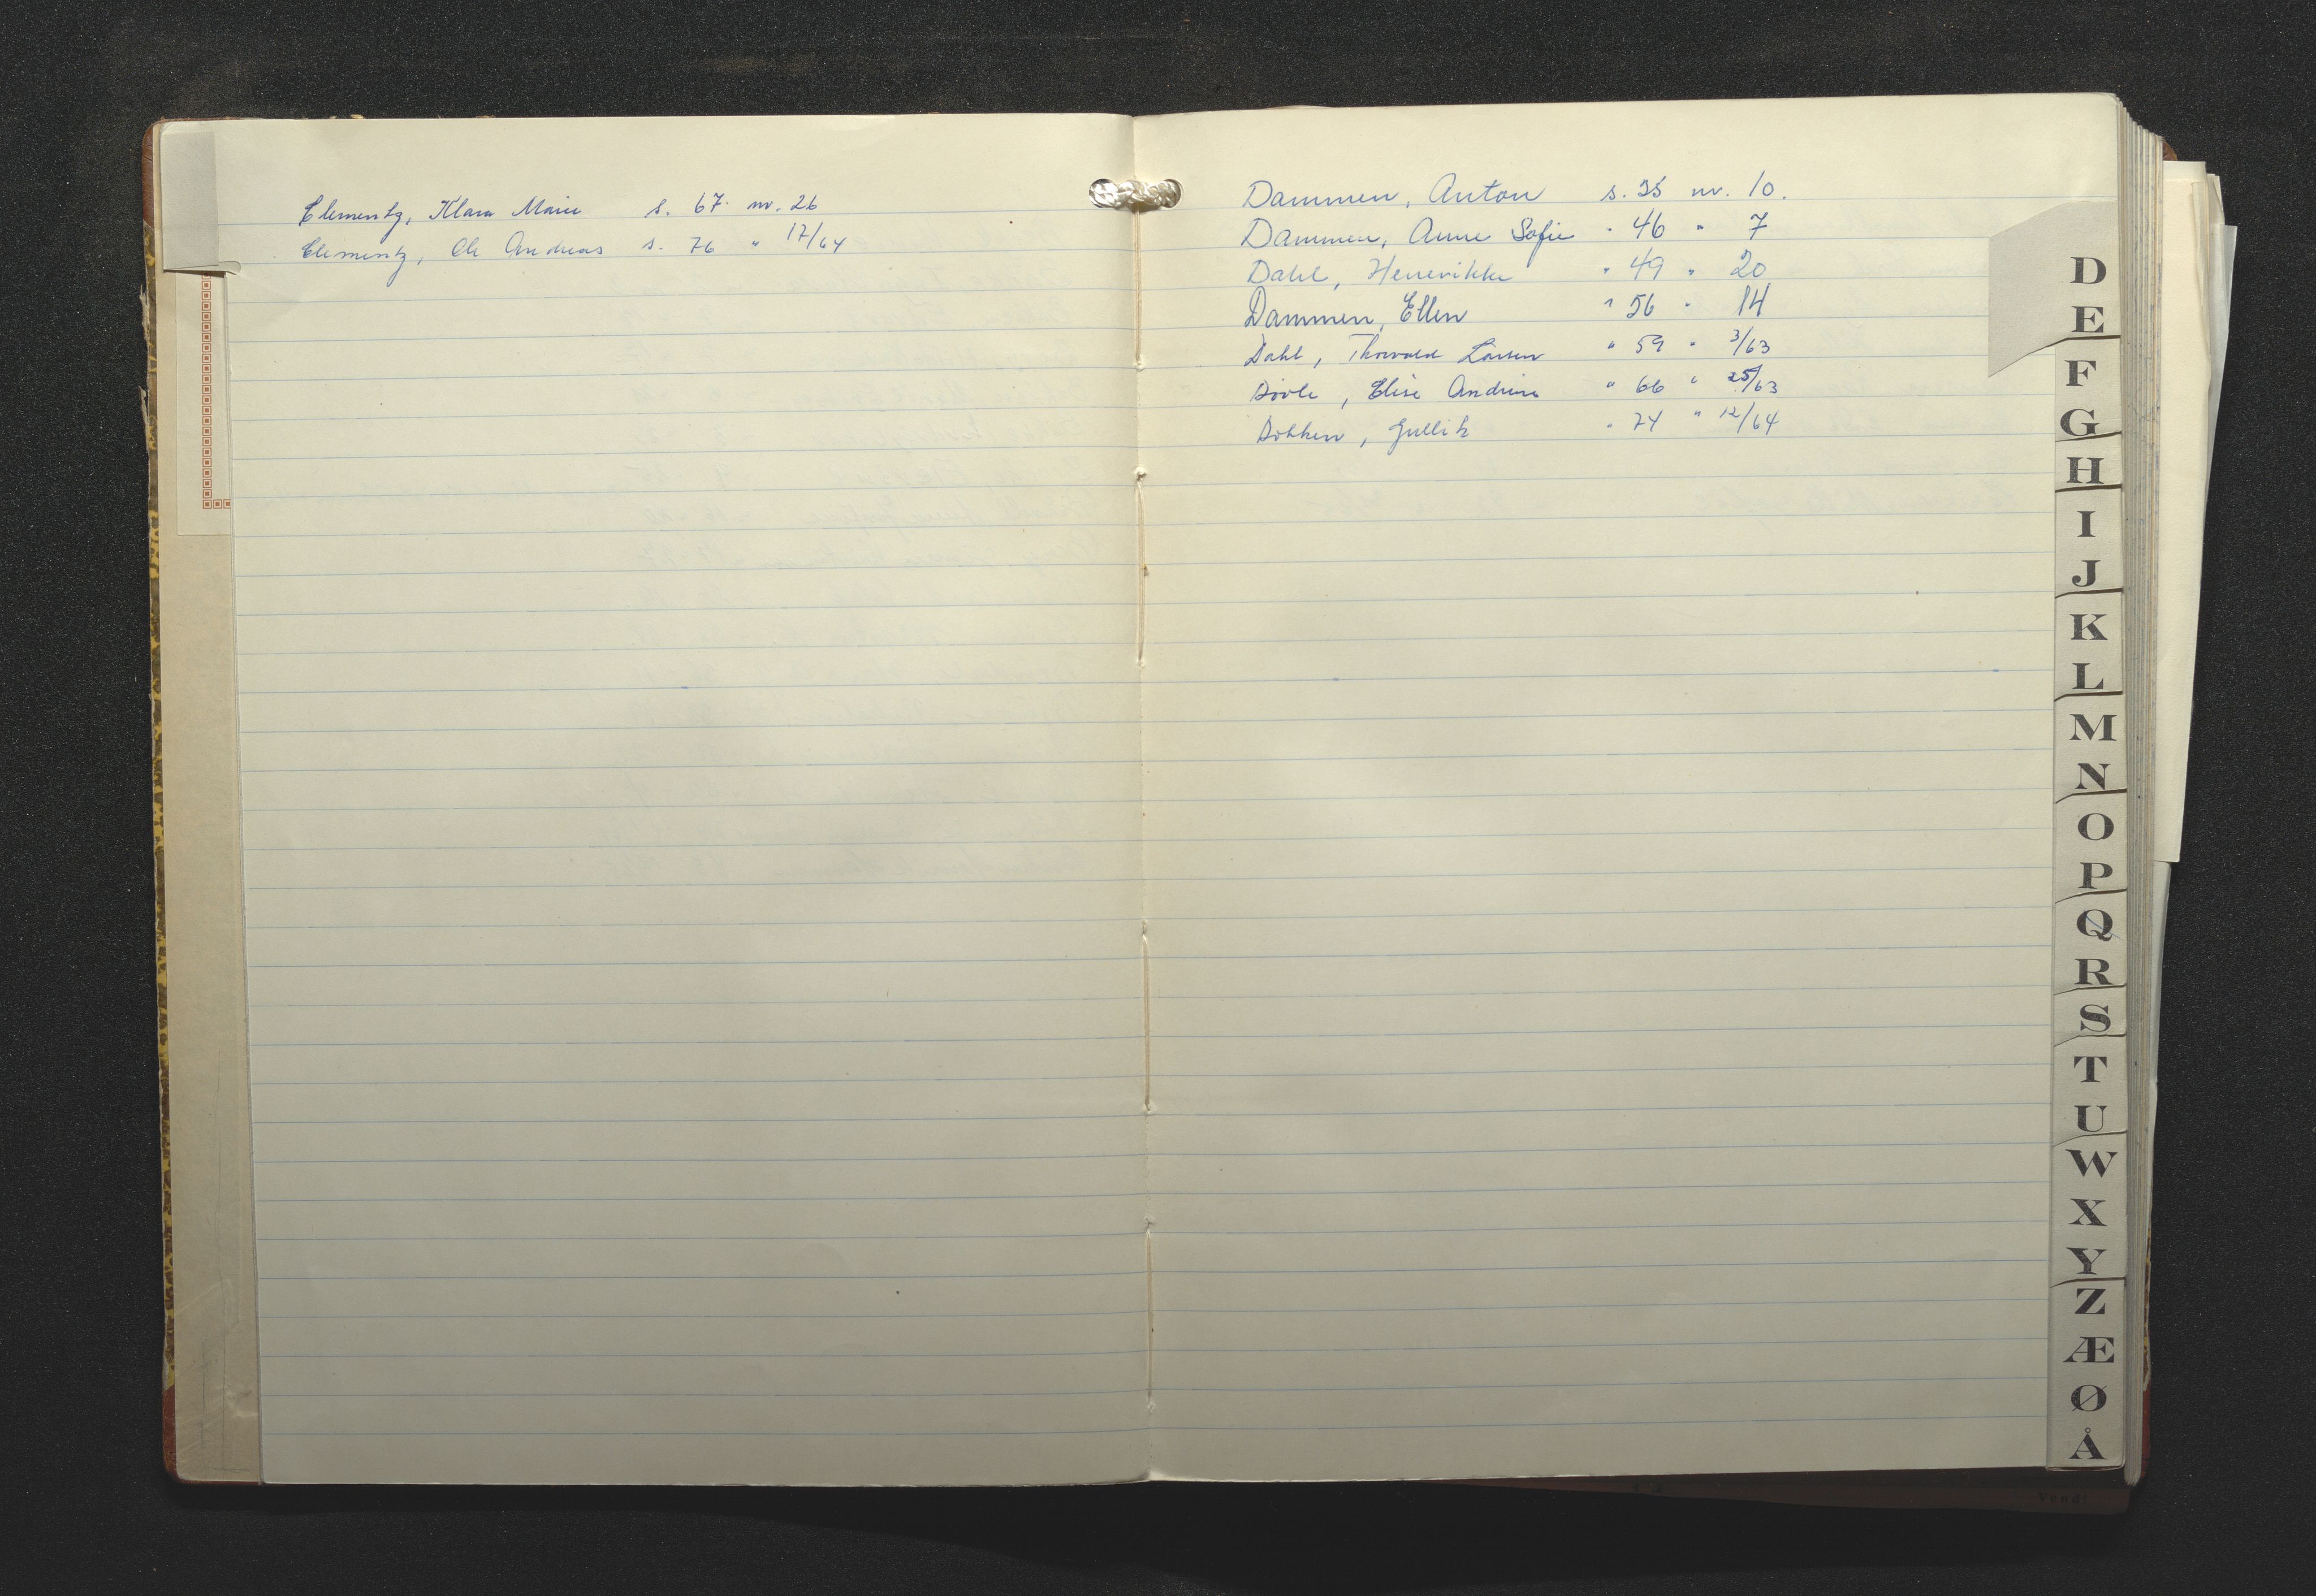 Clementz, Klara Marie s. 67. nr. 26
Clementz, Ole Andreas s. 76 " 17/64
Dammen, Anton s. 35 nr. 10.
Dammen, Anne Sofie " 46 " 7
Dahl, Hennrikke " 49 " 20
Dammen, Ellen " 56 " 14
Dahl, Thorvald Larsen " 59 " 3/63
Dovle, Elise Andrine " 66 " 25/63
Dokken, Gullik " 74 " 12/64
D
E
F
G
H
I
J
K
L
M
N
O
P
Q
R
S
T
U
W
X
Y
Z
Æ
Ø
Å